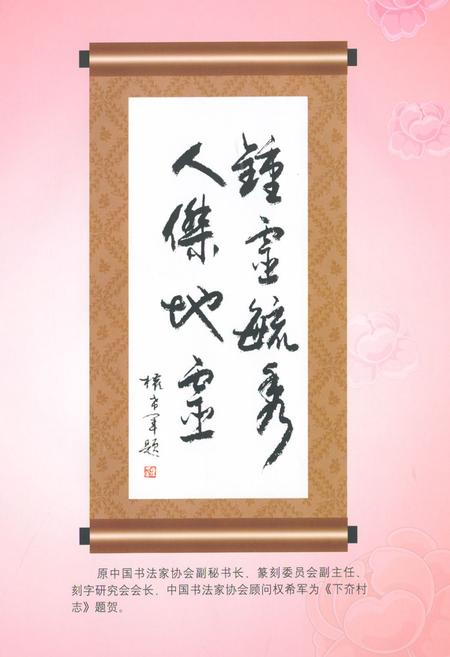 鍾靈毓秀
人傑地靈
權希军題
原中国书法家协会副秘书长、篆刻委员会副主任、
刻字研究会会长、中国书法家协会顾问权希军为《下夼村
志》题贺。